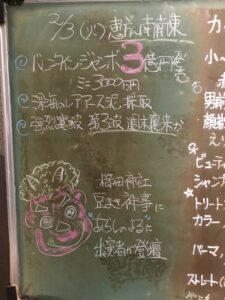 2/3 (火) 恵方南南東
バレンタインジャンボ 3億円発売
ミニ 3000万円
深海のレアアース泥、採取
強烈寒波 第3波 週末襲来か
櫛田神社
豆まき神事に
"あらしのよるに"
出演者が登壇
カ
小〜
男前
顔剃
えり
ビューティ
シャンプ
トリート
カラー
パーマ,
ストレート(